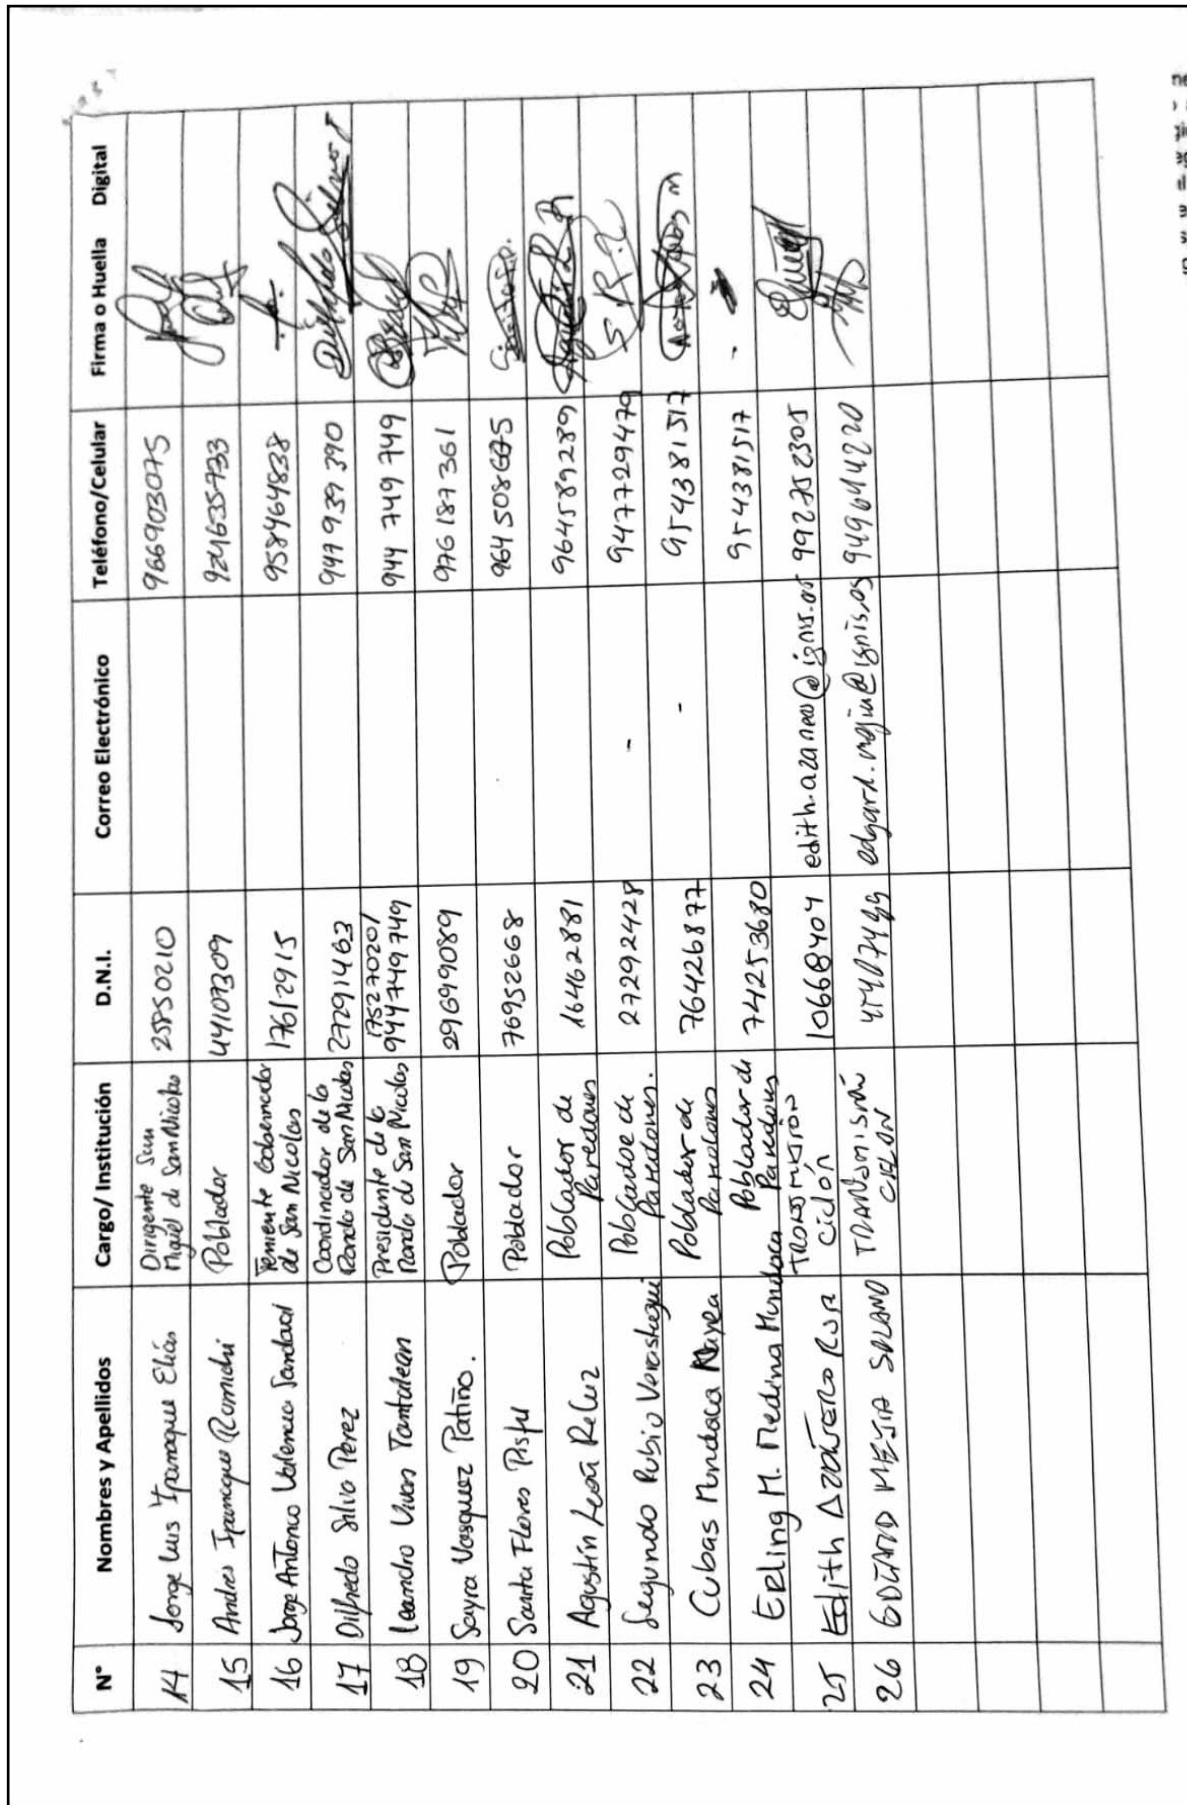 N° Nombres y Apellidos Cargo/ Institución D.N.I. Correo Electrónico Teléfono/Celular Firma o Huella Digital
14 Jorge Luis Ipanaque Elías Dirigente San Miguel de San Nicolas 25850210 966903075
15 Andres Ipanaque Poblador 44107309 924635733
16 Jorge Antonio Valencia Sandoval Teniente Gobernador de San Nicolas 17612915 958464838
17 Dilfredo Silva Perez Coordinador de la Ronda de San Nicolas 27291463 947939 390 Dilfredo Silva P
18 Leandro Vivas Tantalean Presidente de la Ronda de San Nicolas 17527020/ 944749749 944 749 749
19 Sayra Vasquez Patiño. Poblador 29699089 976 187 361
20 Santa Flores Poblador 76952668 964508675
21 Agustín León Reluz Poblador de Paredones 16462881 964589289
22 Segundo Rubio Verastegui Poblador de Paredones. 27292428 - 947729479 S.R.
23 Cubas Mundaca Nayea Poblador de Paredones 76426877 - 954381517
24 Erling M. Medina Mundaca Poblador de Paredones 74253680 954381517 -
25 Edith Azañero Transmisión Ciclón 10668404 992752305
26 MEJIA SOLANO TRANSMISIÓN CICLON 949644220